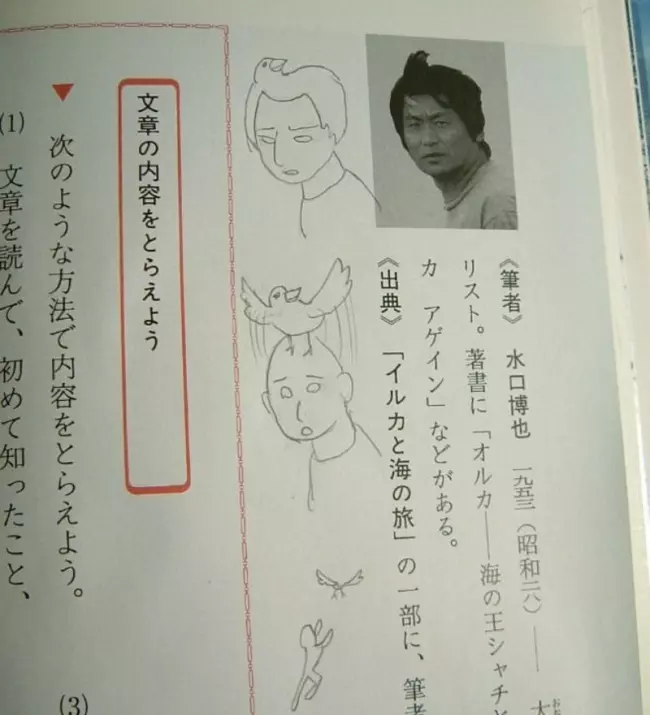 《筆者》 水口博也 一九五三(昭和二八)――
リスト。著書に「オルカ――海の王シャチと
カ アゲイン」などがある。
《出典》 「イルカと海の旅」の一部に、筆者
文章の内容をとらえよう
▼ 次のような方法で内容をとらえよう。
(1) 文章を読んで、初めて知ったこと、
(3)